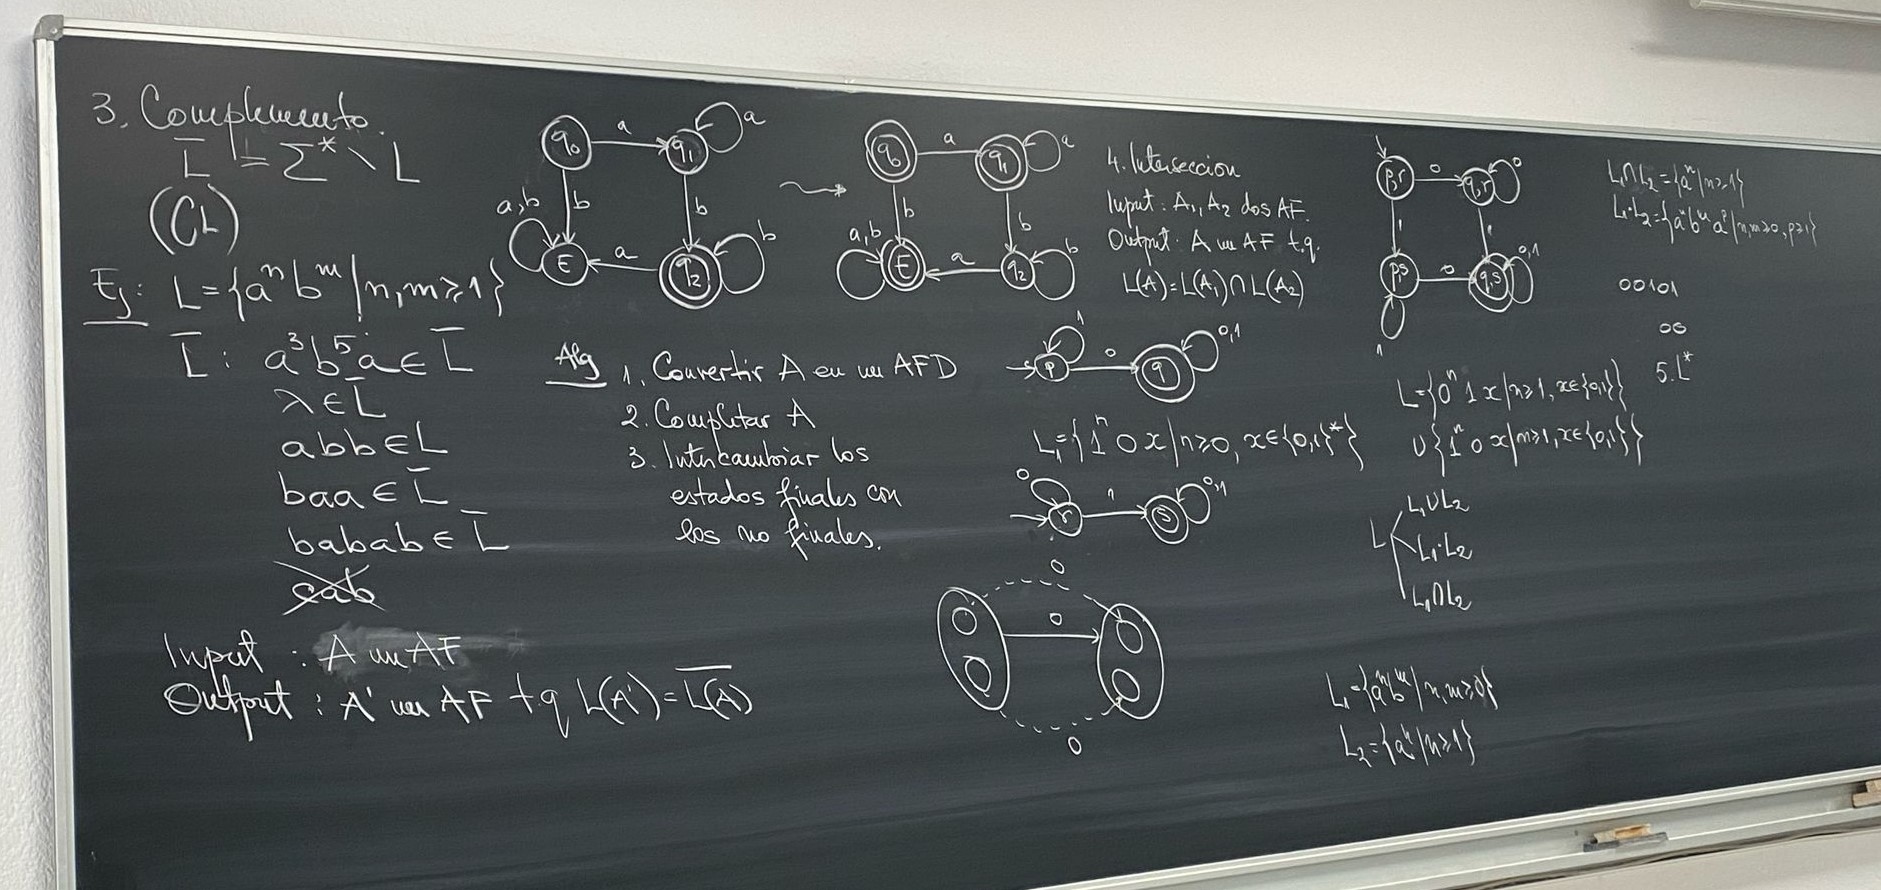 3. Complemento.
L̅ = Σ* \ L
(CL)
Ej: L={aⁿbᵐ/n,m≥1}
L̅: a³b⁵a ∈ L̅
λ ∈ L̅
abb ∈ L
baa ∈ L̅
babab ∈ L̅
cab
Input : A un AF
Output : A' un AF t.q L(A')=L̅(̅A̅)̅
q₀ a q₁ a
a,b b b
E a q₂ b
q₀ a q₁ a
a,b b b
E a q₂ b
Alg 1. Convertir A en un AFD
2. Completar A
3. Intercambiar los
estados finales con
los no finales.
4. Intersección
Input: A₁, A₂ dos AF.
Output: A un AF t.q.
L(A)=L(A₁)∩L(A₂)
p 1 0 q 0,1
L₁={1ⁿ0x/n≥0, x∈{0,1}*}
r 0 1 s 0,1
0
0
0
p,r 0 q,r 0
1 1
p,s 0 q,s 0,1
1
L={0ⁿ1x/n≥1, x∈{0,1}}
∪{1ⁿ0x/m≥1, x∈{0,1}}
L
L₁∪L₂
L₁·L₂
L₁∩L₂
L₁={aⁿbᵐ/n,m≥0}
L₂={aⁿ/n≥1}
L₁∩L₂={aⁿ/n≥1}
L₁·L₂={aⁿbᵐaᵖ/n,m≥0, p≥1}
00101
00
5. L*